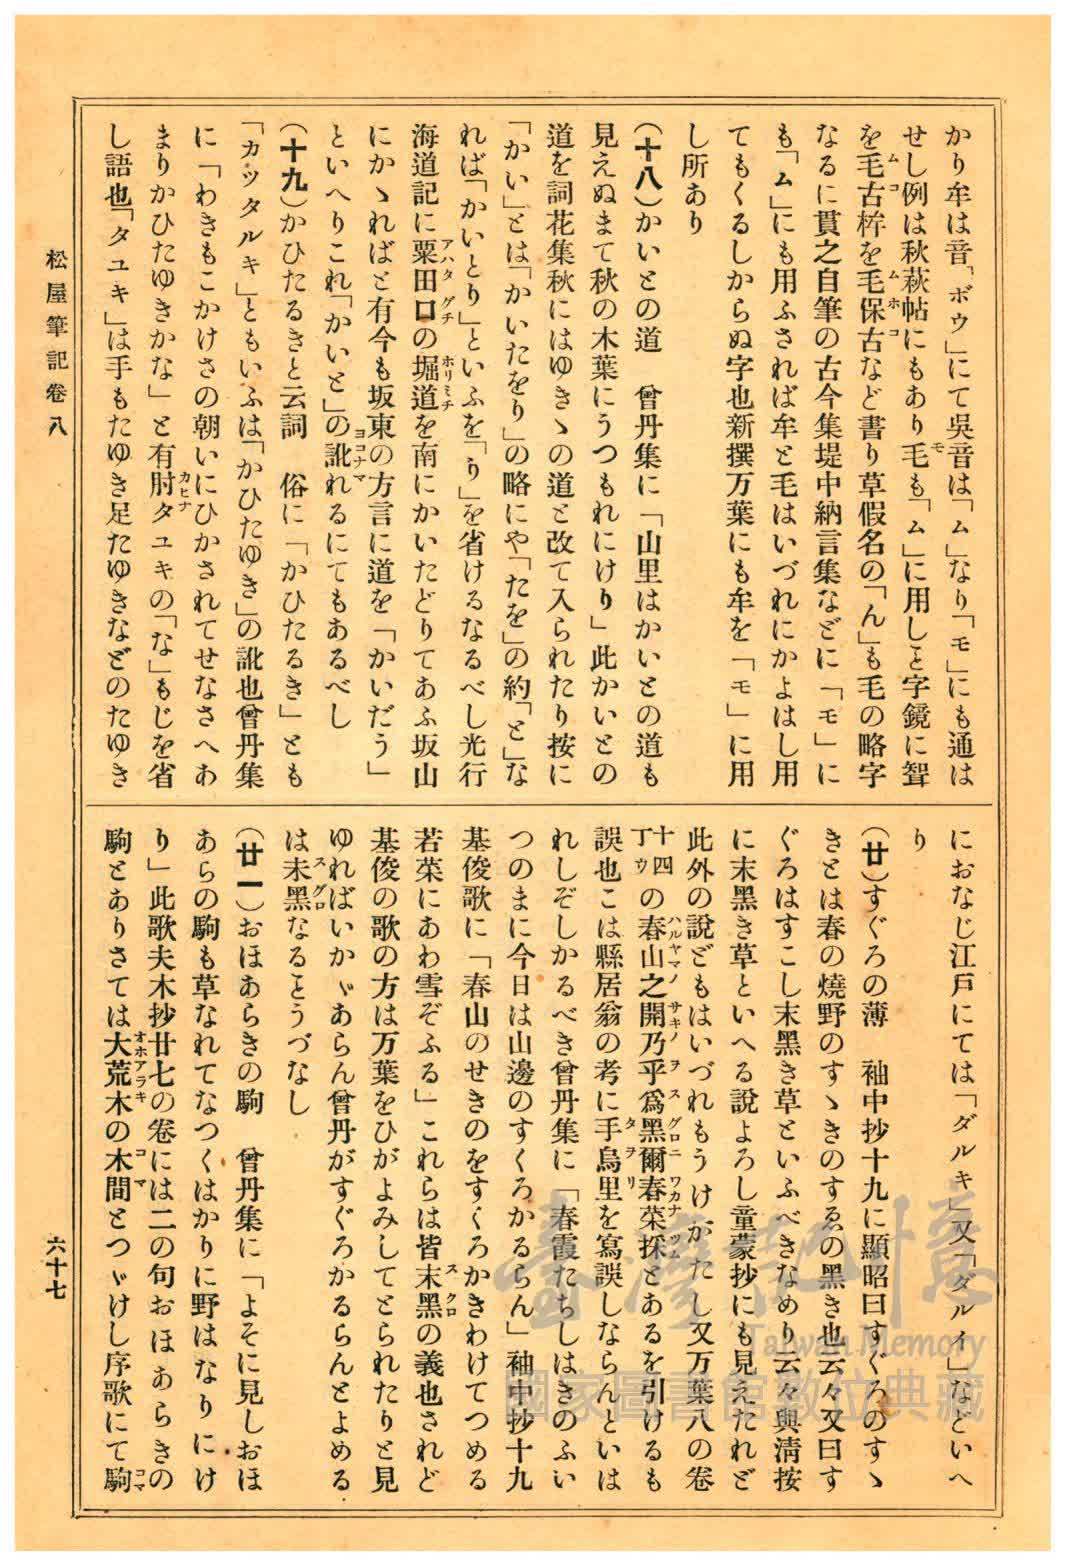 かり牟は音「ボウ」にて吳音は「ム」なり「モ」にも通は
せし例は秋萩帖にもあり毛も「ム」に用しヿ字鏡に聟
を毛古桙を毛保古など書り草假名の「ん」も毛の略字
なるに貫之自筆の古今集堤中納言集などに「モ」に
も「ム」にも用ふされば牟と毛はいづれにかよはし用
てもくるしからぬ字也新撰万葉にも牟を「モ」に用
し所あり
(十八)かいとの道　曾丹集に「山里はかいとの道も
見えぬまて秋の木葉にうつもれにけり」此かいとの
道を詞花集秋にはゆきゝの道と改て入られたり按に
「かい」とは「かいたをり」の略にや「たを」の約「と」な
れば「かいとり」といふを「り」を省けるなるべし光行
海道記に粟田口の堀道を南にかいたどりてあふ坂山
にかゝればと有今も坂東の方言に道を「かいだう」
といへりこれ「かいと」の訛れるにてもあるべし
(十九)かひたるきと云詞　俗に「かひたるき」とも
「カッタルキ」ともいふは「かひたゆき」の訛也曾丹集
に「わきもこかけさの朝いにひかされてせなさへあ
まりかひたゆきかな」と有肘タユキの「な」もじを省
し語也「タユキ」は手もたゆき足たゆきなどのたゆき
におなじ江戸にては「ダルキ」又「ダルイ」などいへ
り
(廿)すぐろの薄　袖中抄十九に顯昭曰すぐろのすゝ
きとは春の燒野のすゝきのすゑの黑き也云々又曰す
ぐろはすこし末黑き草といふべきなめり云々與淸按
に末黑き草といへる說よろし童蒙抄にも見えたれど
此外の說どもはいづれもうけがたし又万葉八の卷
十四丁ウの春山之開乃乎爲黑爾春菜採とあるを引けるも
誤也こは縣居翁の考に手烏里を寫誤しならんといは
れしぞしかるべき曾丹集に「春霞たちしはきのふい
つのまに今日は山邊のすくろかるらん」袖中抄十九
基俊歌に「春山のせきのをすくろかきわけてつめる
若菜にあわ雪ぞふる」これらは皆末黑の義也されど
基俊の歌の方は万葉をひがよみしてとられたりと見
ゆればいかゞあらん曾丹がすぐろかるらんとよめる
は末黑なるヿうづなし
(廿一)おほあらきの駒　曾丹集に「よそに見しおほ
あらの駒も草なれてなつくはかりに野はなりにけ
り」此歌夫木抄廿七の卷には二の句おほあらきの
駒とありさては大荒木の木間とつゞけし序歌にて駒
松屋筆記卷八
六十七
臺灣記憶
Taiwan Memory
國家圖書館數位典藏